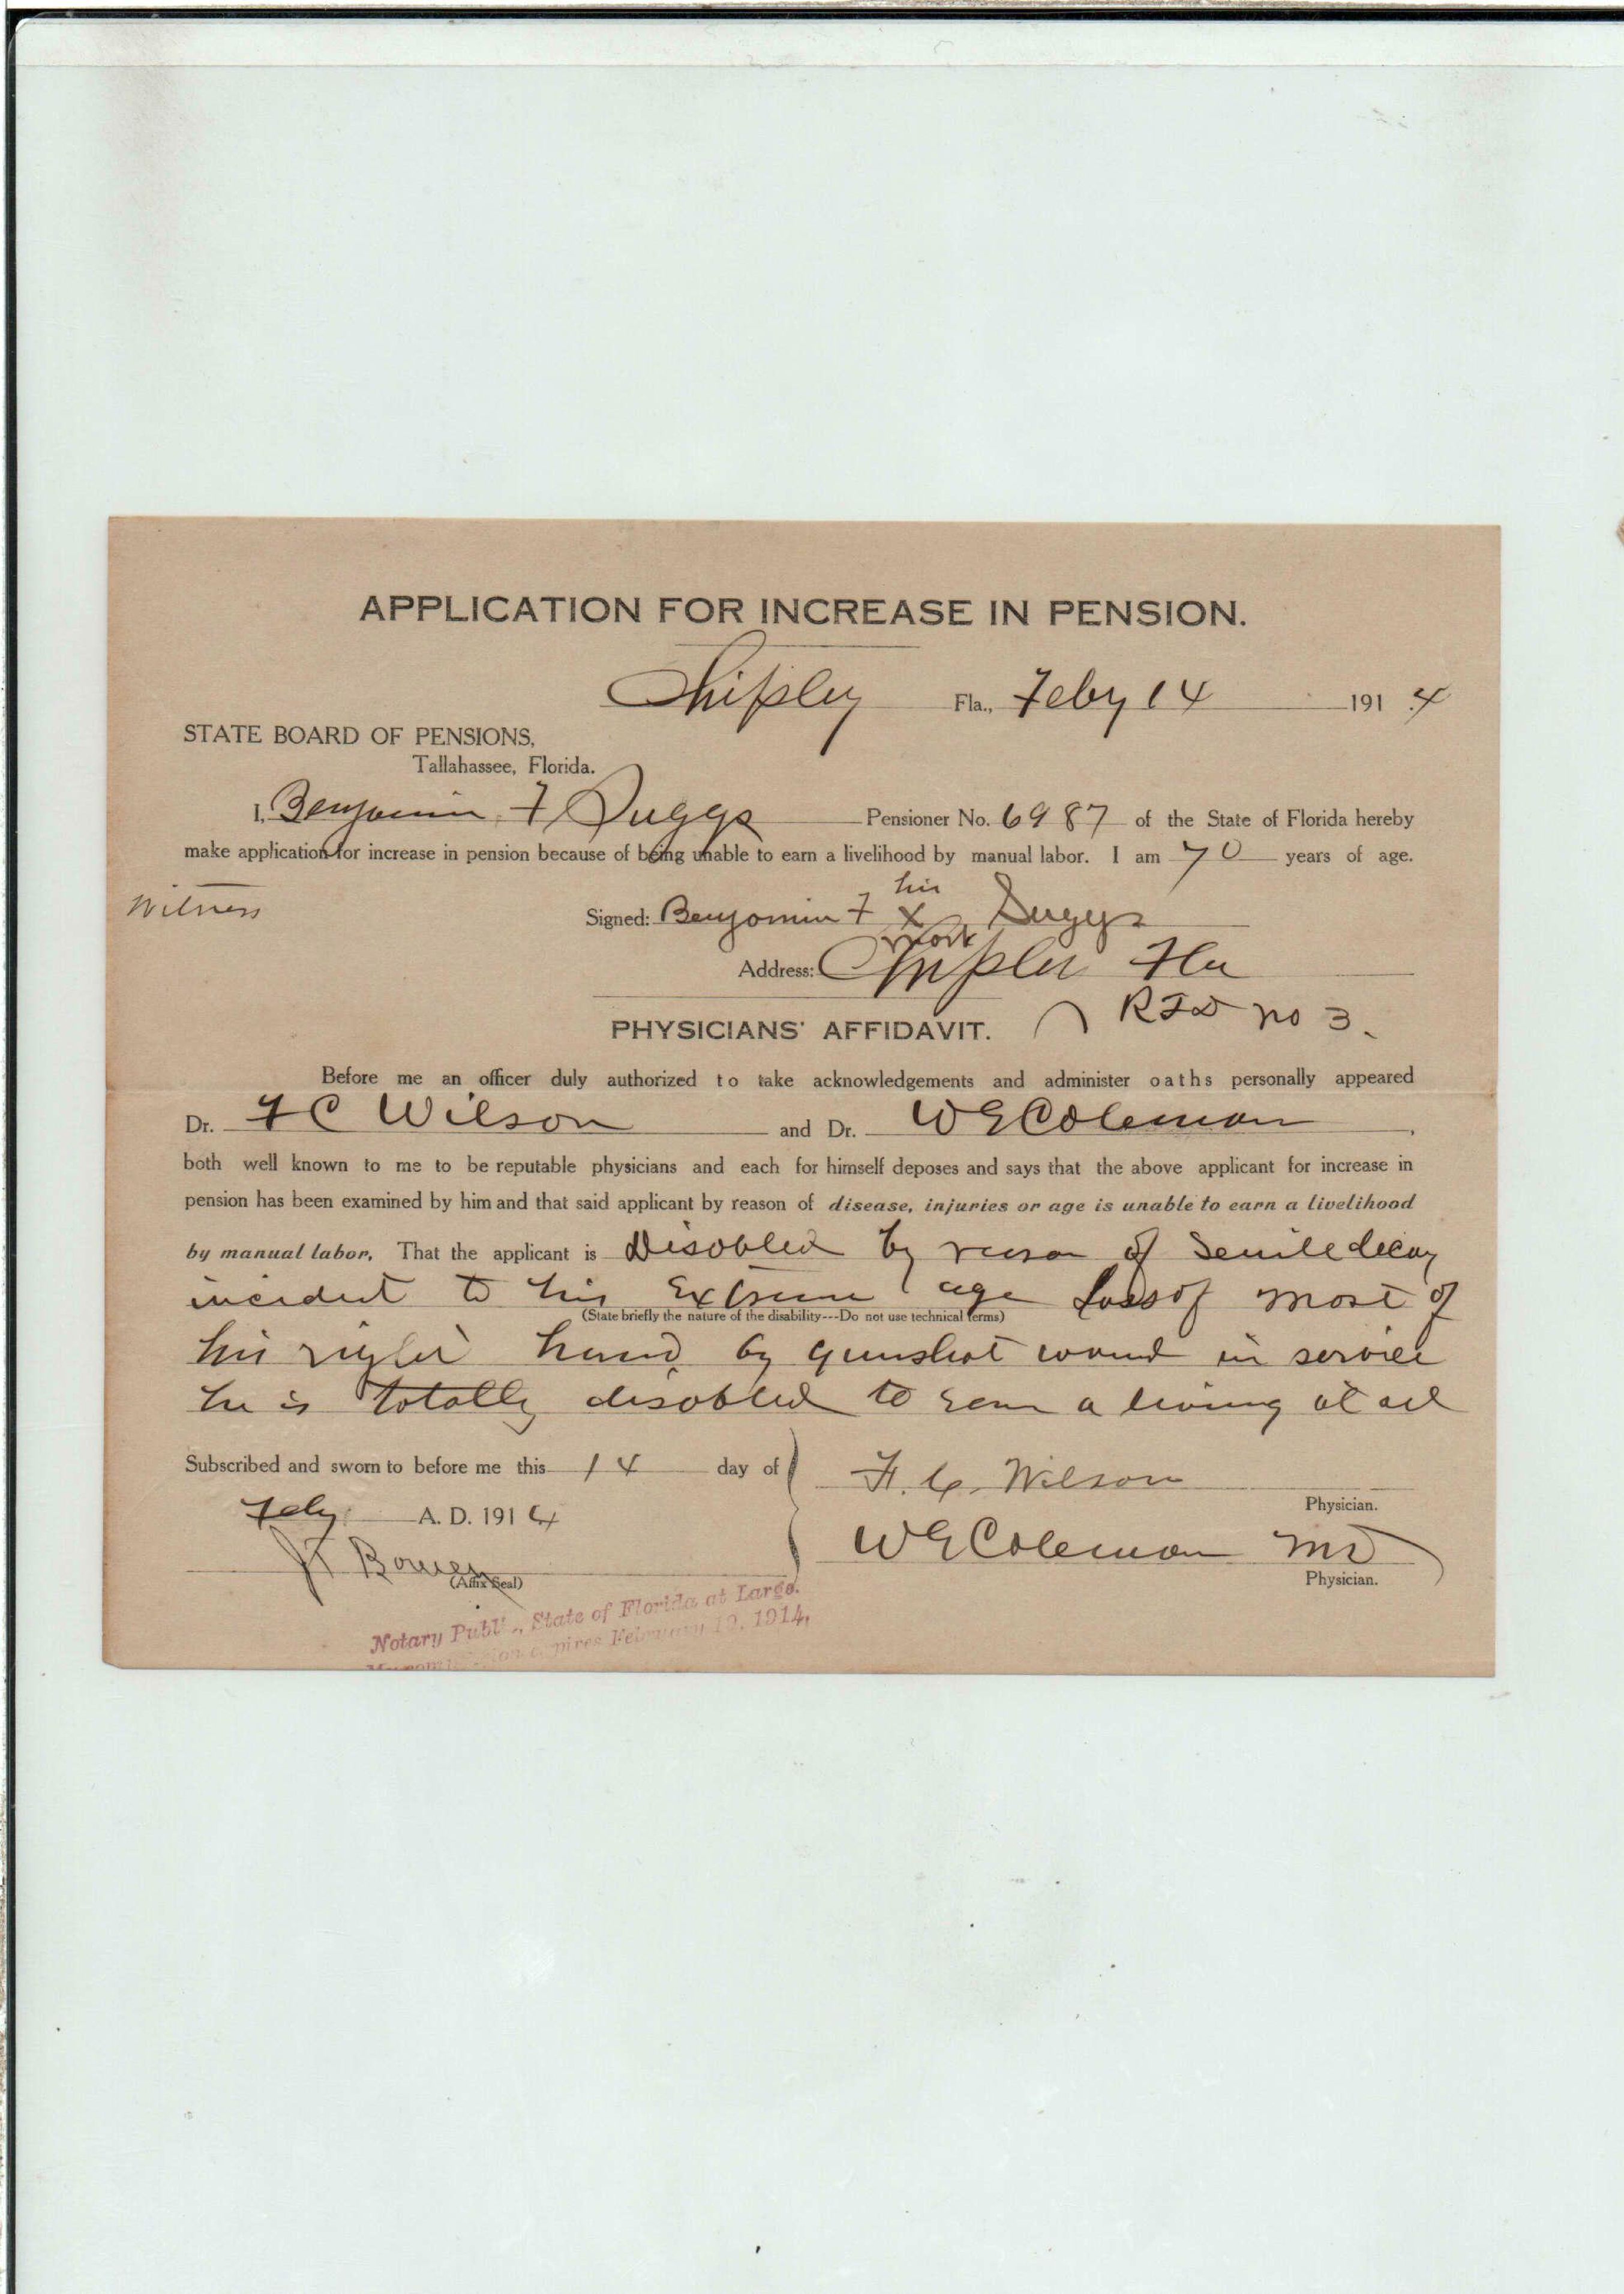 APPLICATION FOR INCREASE IN PENSION.
Chipley Fla., Feby 14 1914
STATE BOARD OF PENSIONS,
Tallahassee, Florida.
I, Benjamin F Suggs Pensioner No. 6987 of the State of Florida hereby
make application for increase in pension because of being unable to earn a livelihood by manual labor. I am 70 years of age.
his
Witness Signed: Benjamin F X Suggs
mark
Address: Chipley Fla
RFD no 3.
PHYSICIANS' AFFIDAVIT.
Before me an officer duly authorized to take acknowledgements and administer oaths personally appeared
Dr. F C Wilson and Dr. W E Coleman,
both well known to me to be reputable physicians and each for himself deposes and says that the above applicant for increase in
pension has been examined by him and that said applicant by reason of disease, injuries or age is unable to earn a livelihood
by manual labor. That the applicant is Disabled by reason of Senile decay
incident to his Extreme age Loss of most of
(State briefly the nature of the disability---Do not use technical terms)
his right hand by gunshot wound in service
he is totally disabled to earn a living at all
Subscribed and sworn to before me this 14 day of F. C. Wilson
Physician.
Feby A. D. 1914
J T Bowen W E Coleman MD
(Affix Seal) Physician.
Notary Public, State of Florida at Large.
My commission expires February 19, 1914,